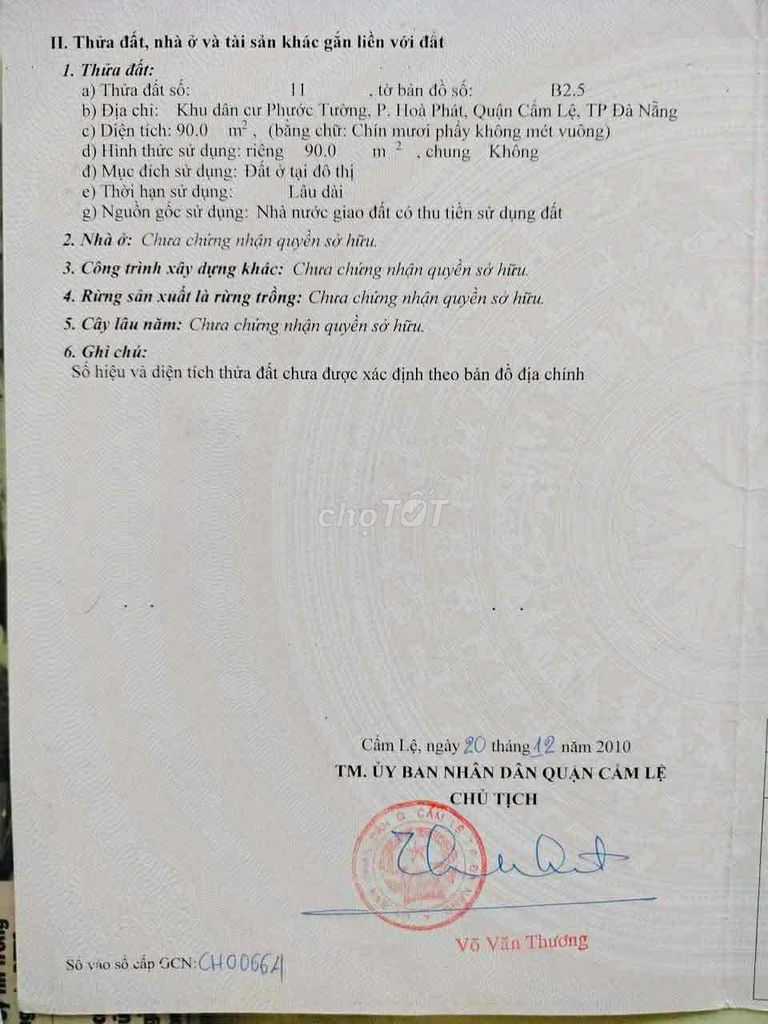 II. Thửa đất, nhà ở và tài sản khác gắn liền với đất
1. Thửa đất:
a) Thửa đất số: 11 , tờ bản đồ số: B2.5
b) Địa chỉ: Khu dân cư Phước Tường, P. Hoà Phát, Quận Cẩm Lệ, TP Đà Nẵng
c) Diện tích: 90.0 m², (bằng chữ: Chín mươi phẩy không mét vuông)
d) Hình thức sử dụng: riêng 90.0 m ² , chung Không
đ) Mục đích sử dụng: Đất ở tại đô thị
e) Thời hạn sử dụng: Lâu dài
g) Nguồn gốc sử dụng: Nhà nước giao đất có thu tiền sử dụng đất
2. Nhà ở: Chưa chứng nhận quyền sở hữu.
3. Công trình xây dựng khác: Chưa chứng nhận quyền sở hữu.
4. Rừng sản xuất là rừng trồng: Chưa chứng nhận quyền sở hữu.
5. Cây lâu năm: Chưa chứng nhận quyền sở hữu.
6. Ghi chú:
Số hiệu và diện tích thửa đất chưa được xác định theo bản đồ địa chính
chợTỐT
Cẩm Lệ, ngày 20 tháng 12 năm 2010
TM. ỦY BAN NHÂN DÂN QUẬN CẨM LỆ
CHỦ TỊCH
Võ Văn Thương
Số vào sổ cấp GCN: CH00664